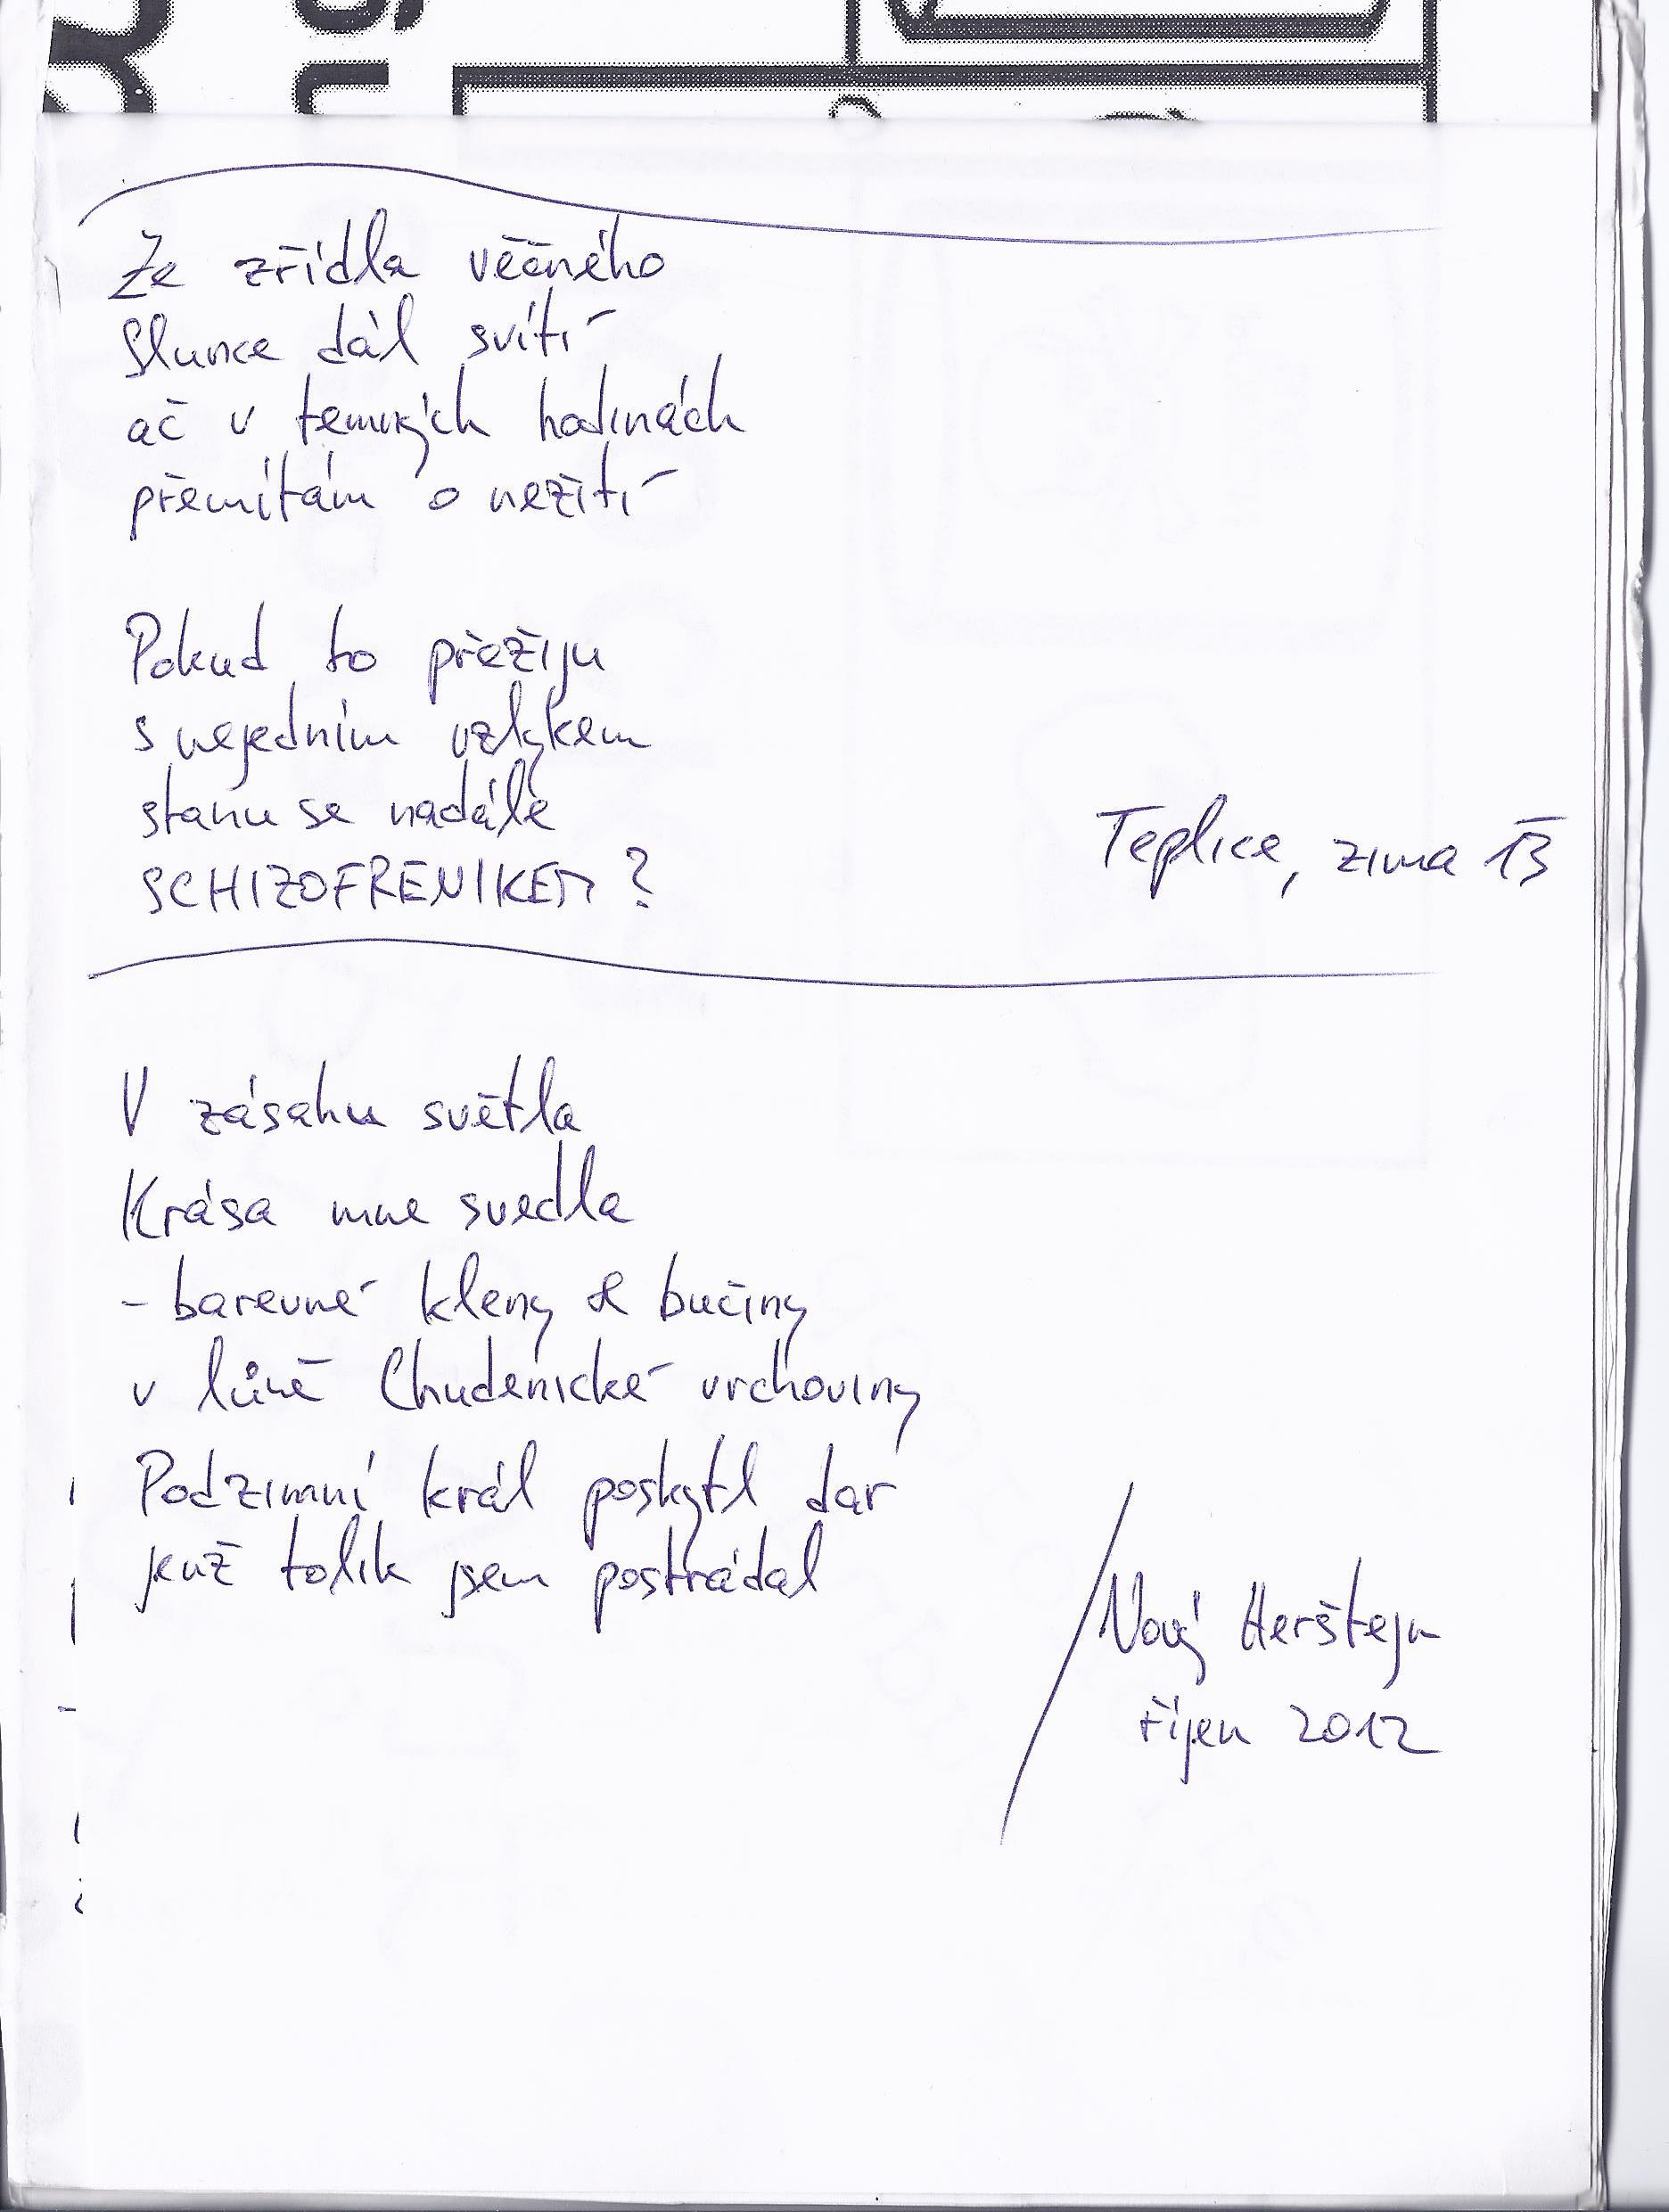 Ze zřídla věčného
Slunce dál svítí
ač v temných hodinách
přemítám o nežití
Pokud to přežiju
s nejedním vzlykem
stanu se nadále
SCHIZOFRENIKEM?
Teplice, zima 13
V zásahu světla
Krása mne svedla
- barevné kleny & bučiny
v lůně Chudenické vrchoviny
Podzimní král poskytl dar
jenž tolik jsem postrádal
Nový Herštejn
říjen 2012